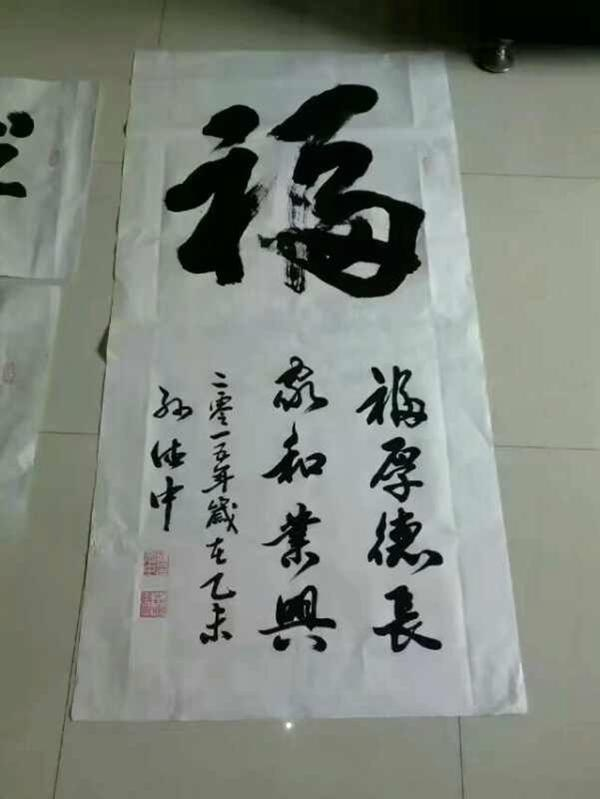 福
福厚德長
家和業興
二零一五年歲在乙未
孙德中